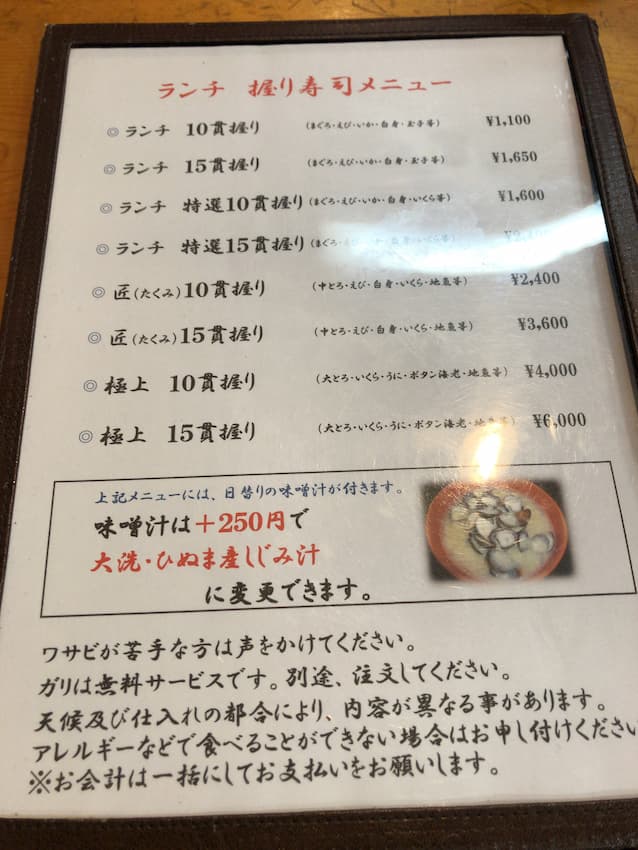 ランチ 握り寿司メニュー
◎ ランチ 10貫握り (まぐろ・えび・いか・白身・玉子等) ¥1,100
◎ ランチ 15貫握り (まぐろ・えび・いか・白身・玉子等) ¥1,650
◎ ランチ 特選10貫握り (まぐろ・えび・いか・白身・いくら等) ¥1,600
◎ ランチ 特選15貫握り (まぐろ・えび・いか・白身・いくら等)
◎ 匠(たくみ)10貫握り (中とろ・えび・白身・いくら・地魚等) ¥2,400
◎ 匠(たくみ)15貫握り (中とろ・えび・白身・いくら・地魚等) ¥3,600
◎ 極上 10貫握り (大とろ・いくら・うに・ボタン海老・地魚等) ¥4,000
◎ 極上 15貫握り (大とろ・いくら・うに・ボタン海老・地魚等) ¥6,000
上記メニューには、日替りの味噌汁が付きます。
味噌汁は+250円で
大洗・ひぬま産しじみ汁
に変更できます。
ワサビが苦手な方は声をかけてください。
ガリは無料サービスです。別途、注文してください。
天候及び仕入れの都合により、内容が異なる事があります。
アレルギーなどで食べることができない場合はお申し付けください
※お会計は一括にしてお支払いをお願いします。